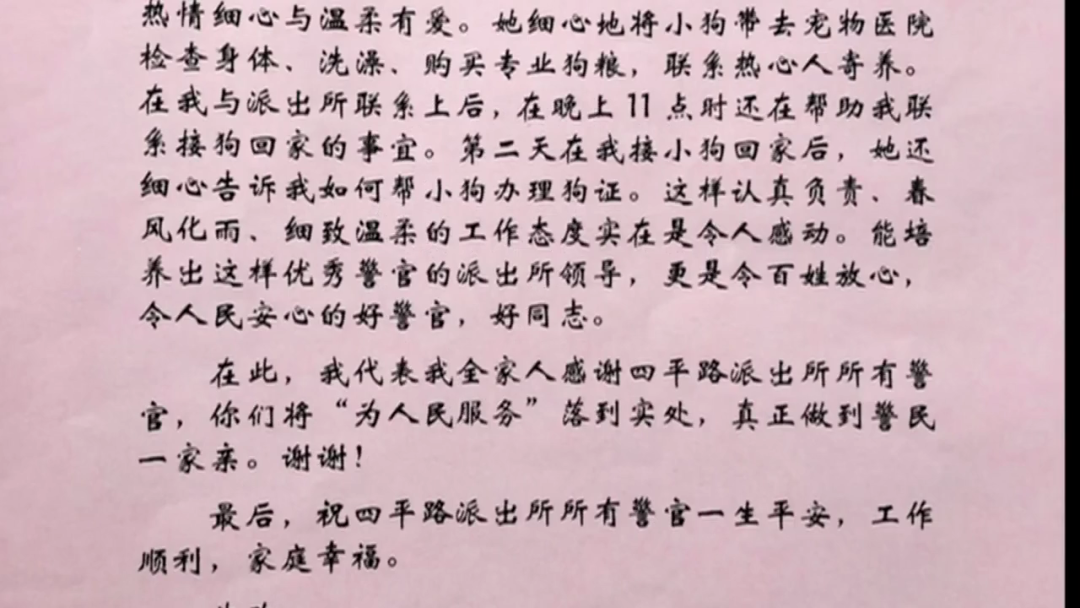 热情细心与温柔有爱。她细心地将小狗带去宠物医院
检查身体、洗澡、购买专业狗粮，联系热心人寄养。
在我与派出所联系上后，在晚上11点时还在帮助我联
系接狗回家的事宜。第二天在我接小狗回家后，她还
细心告诉我如何帮小狗办理狗证。这样认真负责、春
风化雨、细致温柔的工作态度实在是令人感动。能培
养出这样优秀警官的派出所领导，更是令百姓放心，
令人民安心的好警官，好同志。
在此，我代表我全家人感谢四平路派出所所有警
官，你们将“为人民服务”落到实处，真正做到警民
一家亲。谢谢！
最后，祝四平路派出所所有警官一生平安，工作
顺利，家庭幸福。